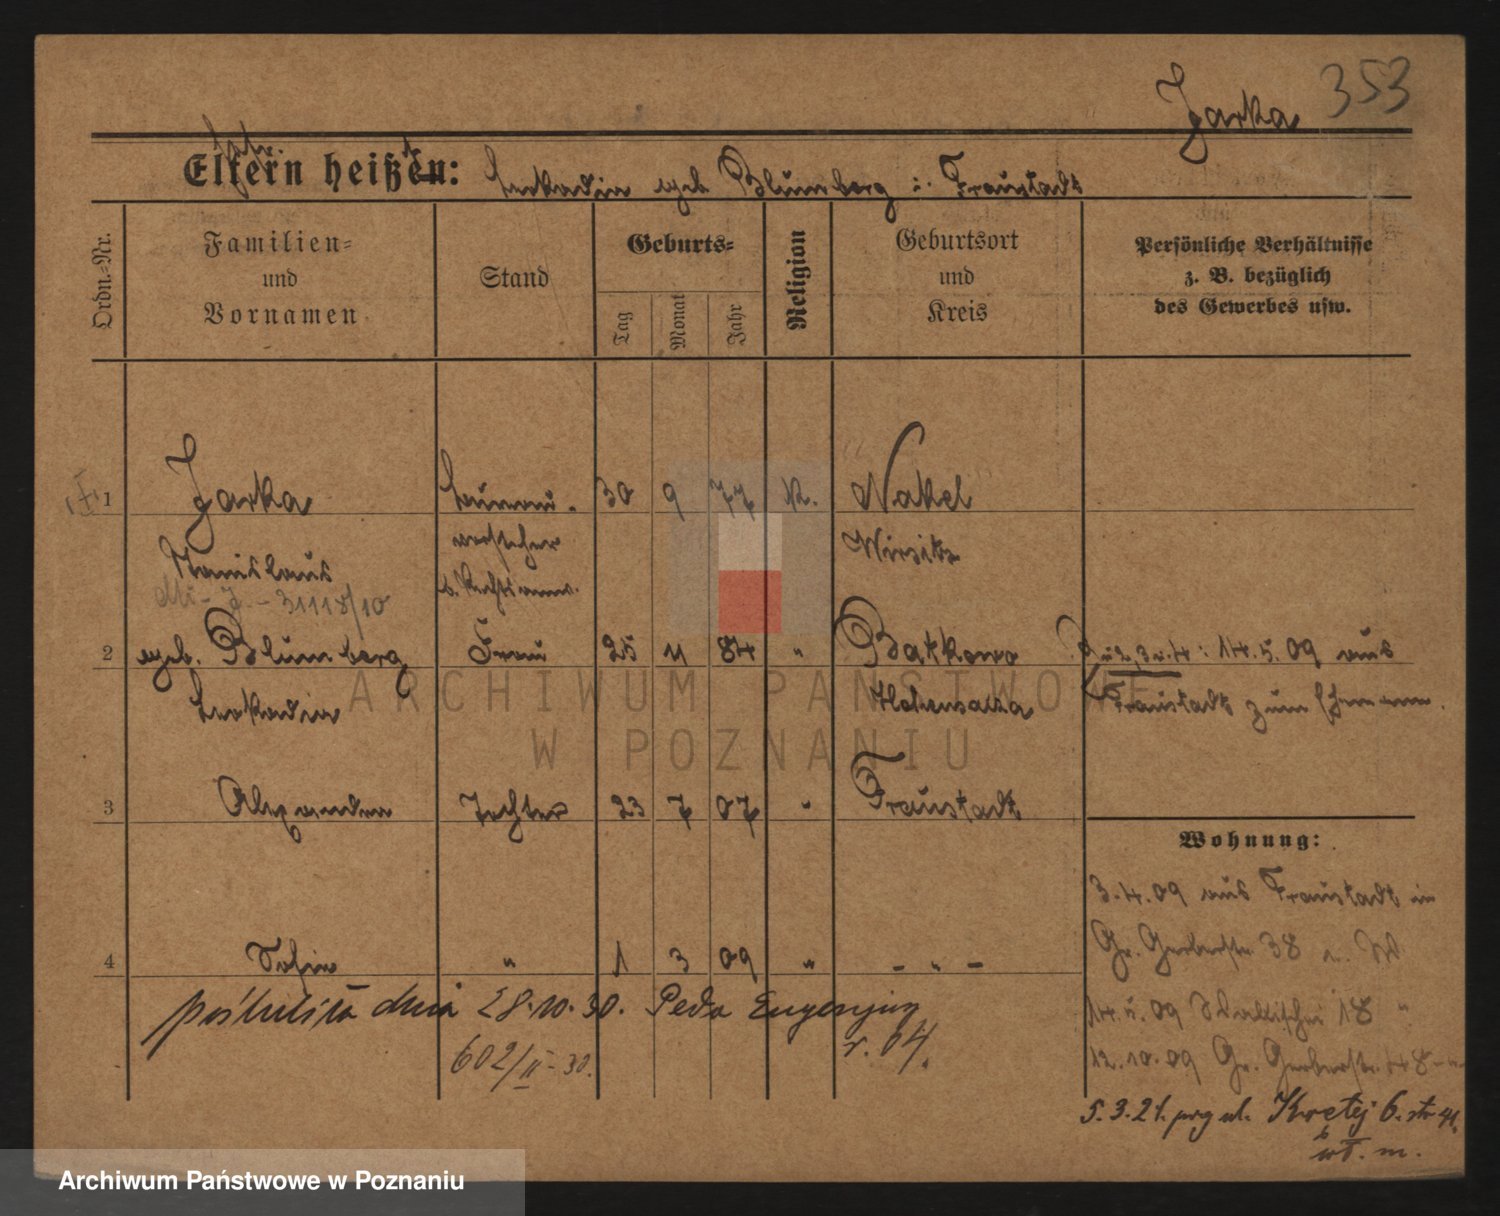 Jarka 353
Eltern heißen: Leokadia geb. Blumberg i. Fraustadt
Ordn.-Nr.
Familien-
und
Vornamen
Stand
Geburts-
Tag
Monat
Jahr
Religion
Geburtsort
und
Kreis
Persönliche Verhältnisse
z. B. bezüglich
des Gewerbes usw.
1 Jarka 30 9 77 k. Nakel
Stanislaus vorsteher Wirsitz
31118/10
2 geb. Blumberg Frau 25 11 84 " Batkowo 2, 3 u. 4: 14.5.09 aus
Leokadia Hohensalza Fraustadt zum Ehemann.
3 Alexandra Tochter 23 7 07 " Fraustadt
Wohnung:
3.4.09 aus Fraustadt in
4 Sofie " 1 3 09 " - " - Gr. Gerberstr. 38
poślubiła dnia 28.10.30. Peda Eugenjusz
r. 04.
14.5.09 Wallischei 18 "
602/II-30.
12.10.09 Gr. Gerberstr. 48
5.3.21. prg ul. Krętej 6.
m.
ARCHIWUM PAŃSTWOWE
W POZNANIU
Archiwum Państwowe w Poznaniu